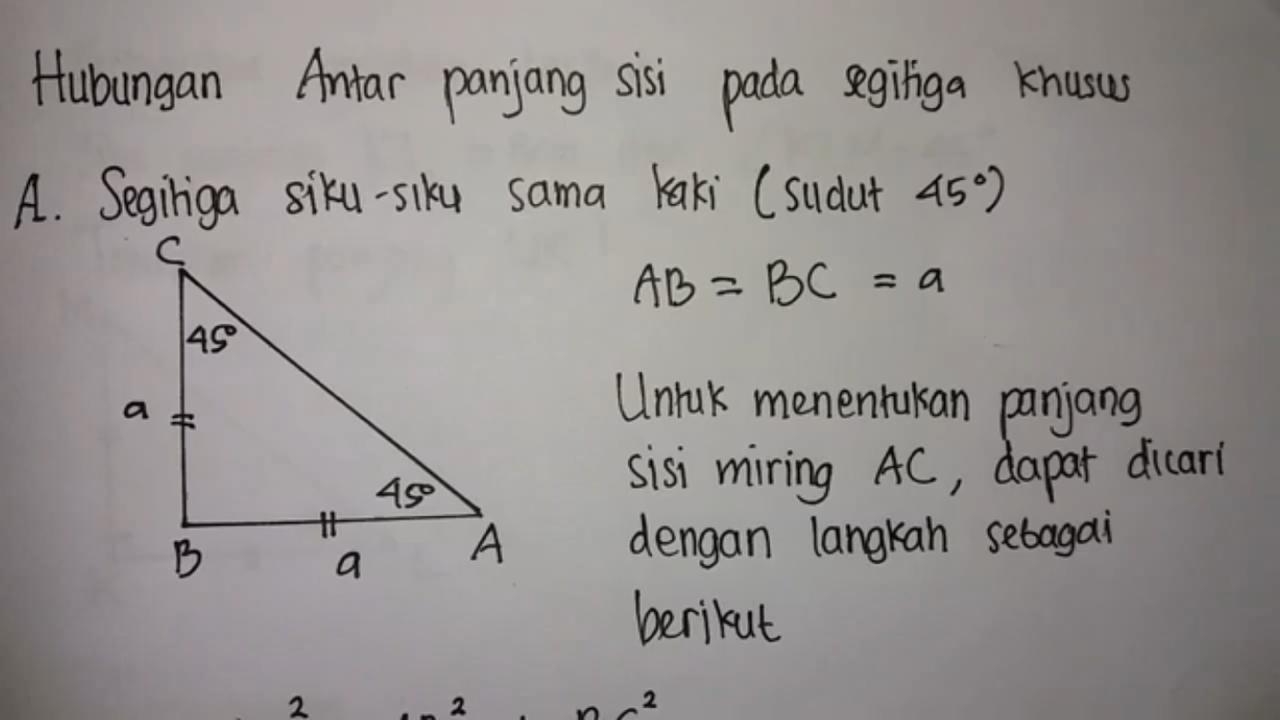 Hubungan Antar panjang sisi pada segitiga khusus
A. Segitiga siku-siku sama kaki (sudut 45°)
C
AB = BC = a
45°
a
Untuk menentukan panjang
sisi miring AC, dapat dicari
45°
dengan langkah sebagai
B a A
berikut